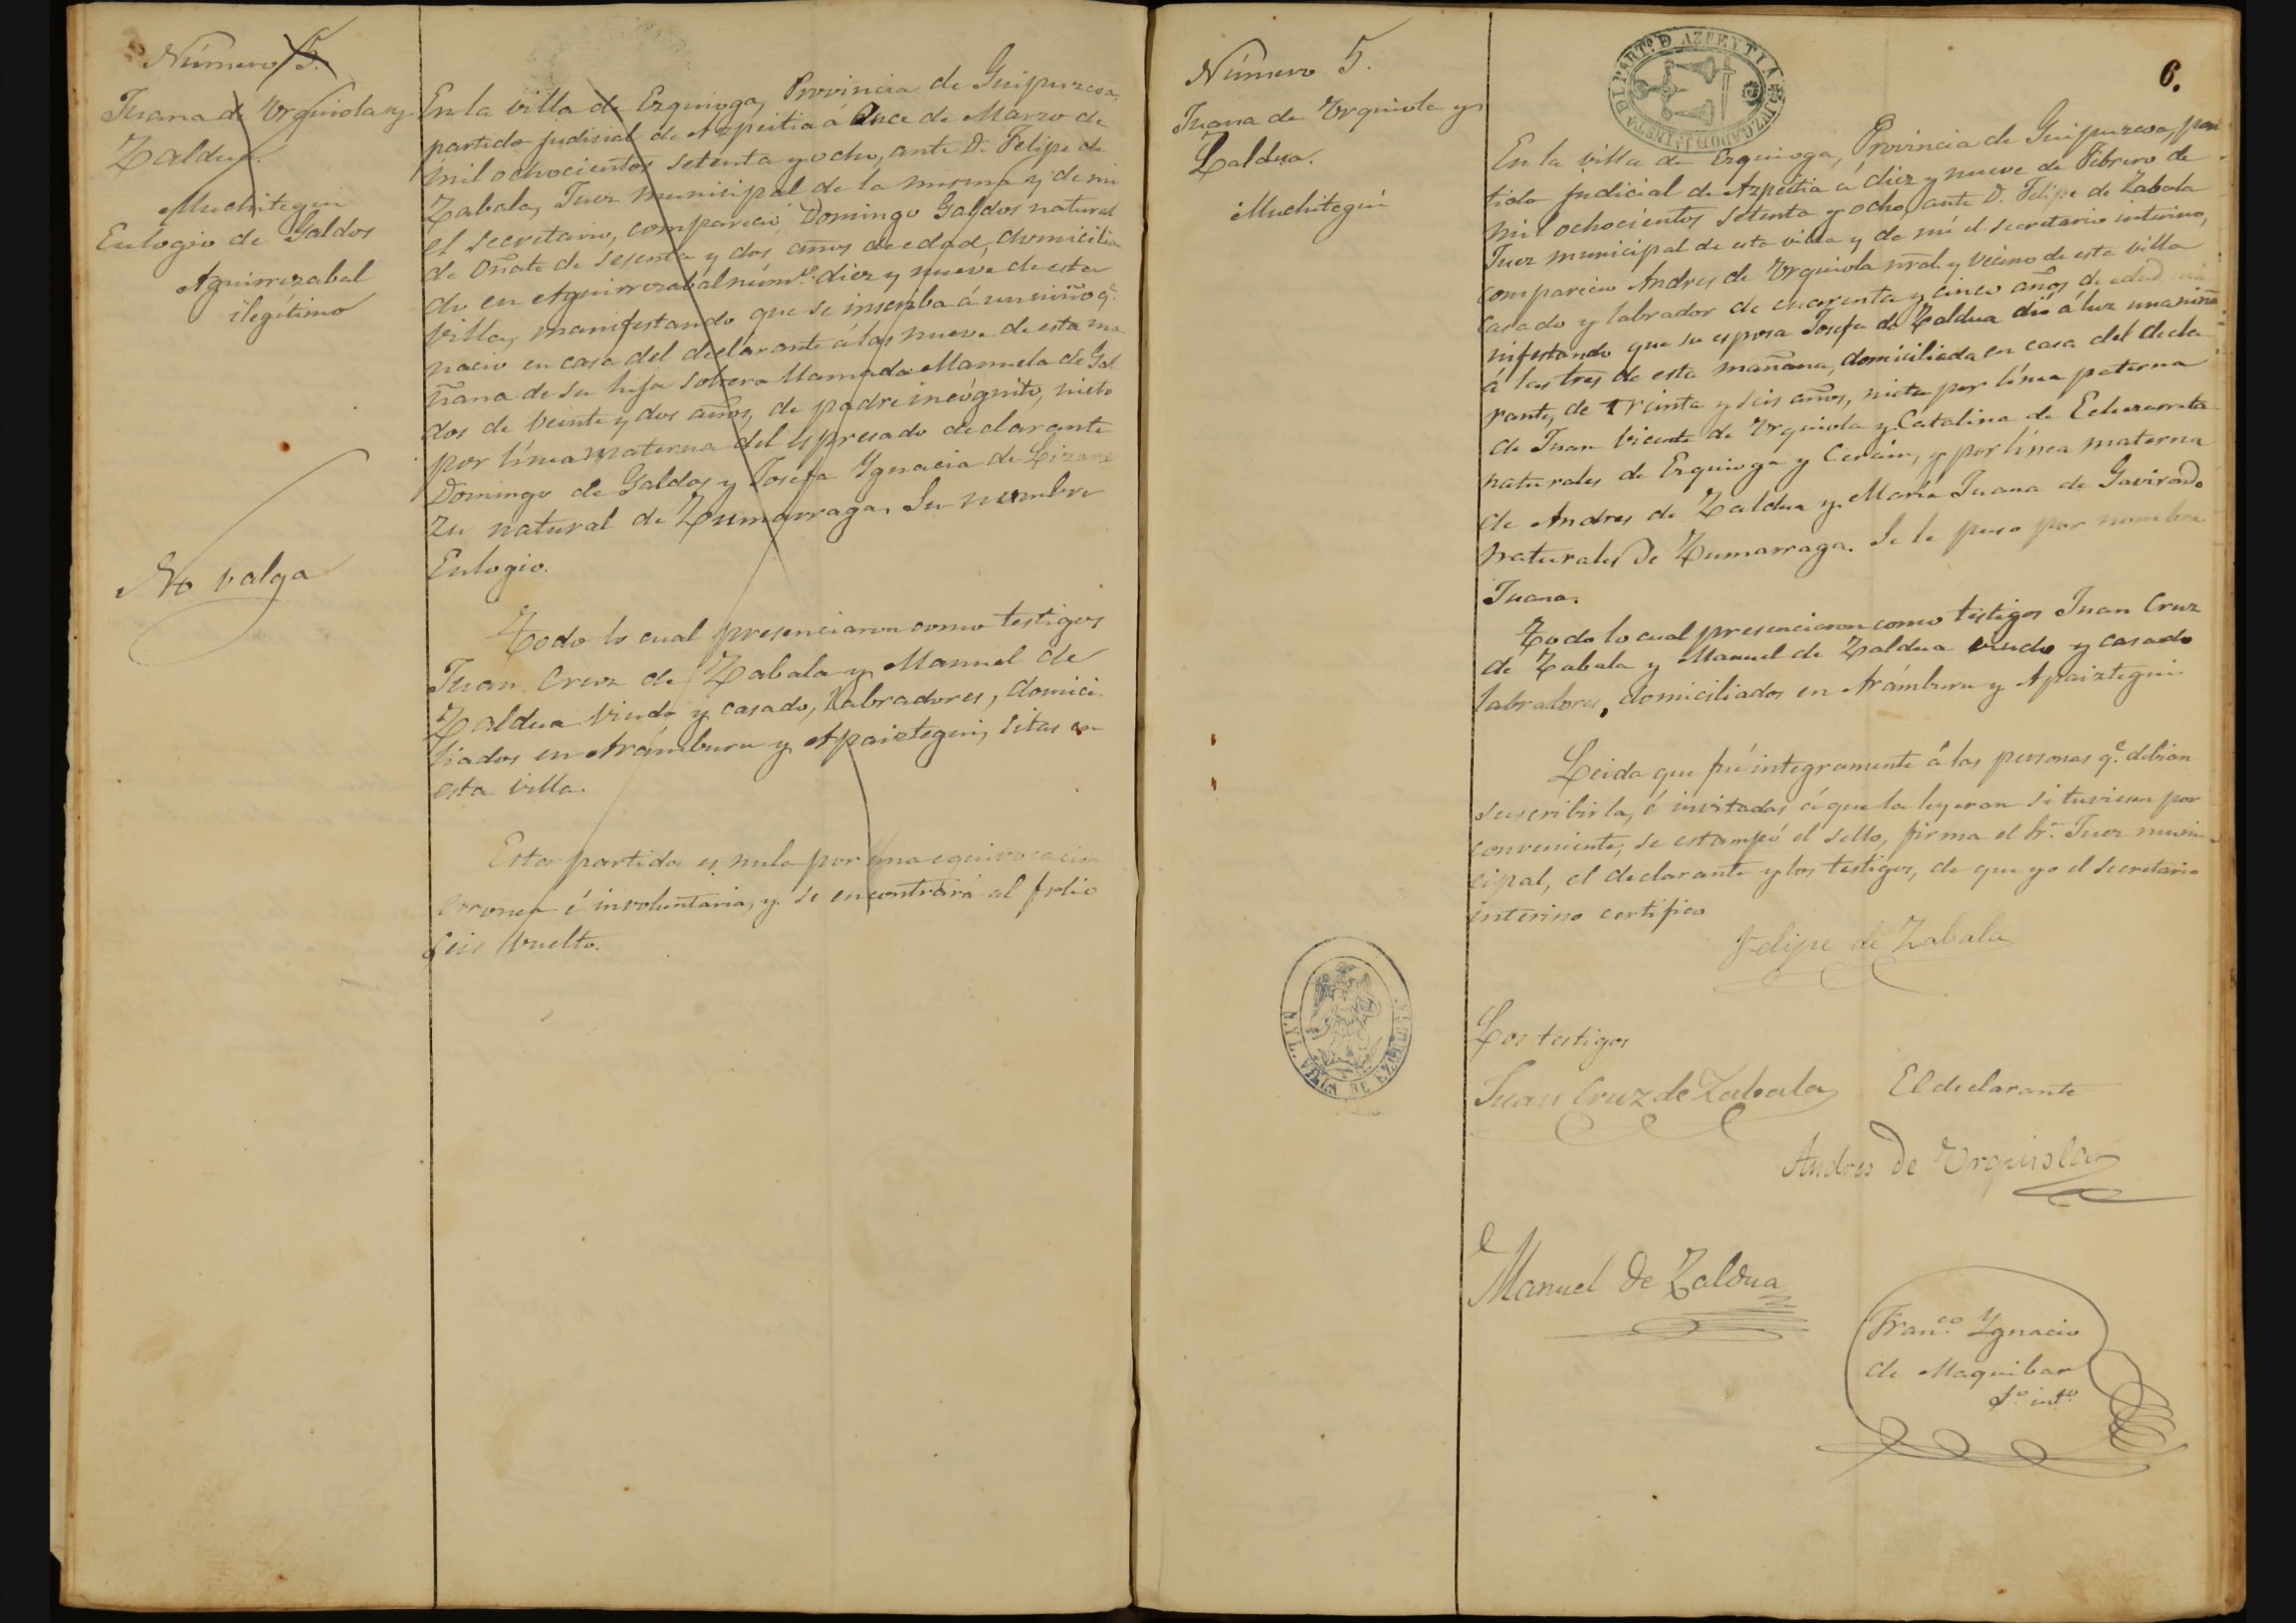 Número 5.
Juana de Urquiola y
Zaldua.
Muchitegui
Eulogio de Galdos
Aguirrezabal
ilegítimo
No valga
En la villa de Ezquioga, Provincia de Guipuzcoa,
partido judicial de Azpeitia á Once de Marzo de
mil ochocientos setenta y ocho, ante D. Felipe de
Zabala, Juez municipal de la misma y de mi
el secretario, compareció Domingo Galdos natural
de Oñate de sesenta y dos años de edad, domicilia
do en Aguirrezabal núm.º diez y nueve de esta
villa, manifestando que se inscriba á un niño q.e
nació en casa del declarante á las nueve de esta ma
ñana de su hija soltera llamada Manuela de Gal
dos de veinte y dos años, de padre incógnito, nieto
por línea materna del espresado declarante
Domingo de Galdos y Josefa Ygnacia de Lizara
zu natural de Zumarraga. Su nombre
Eulogio.
Todo lo cual presenciaron como testigos
Juan Cruz de Zabala y Manuel de
Zaldua viudo y casado, labradores, domici
liados en Arámburu y Apaiztegui, sitas en
esta villa.
Esta partida es nula por una equivocacion
erronea é involuntaria, y se encontrará al folio
seis vuelto.
Número 5.
Juana de Urquiola y
Zaldua.
Muchitegui
N. Y L. VILLA DE EZQUIOGA
JUZGADO MUNICIPAL PARTº. D AZPEYTIA
6.
En la villa de Ezquioga, Provincia de Guipuzcoa, par
tido judicial de Azpeitia á diez y nueve de Febrero de
mil ochocientos setenta y ocho, ante D. Felipe de Zabala
Juez municipal de esta villa y de mí el secretario interino,
compareció Andres de Urquiola nral. y vecino de esta villa
casado y labrador de cuarenta y cinco años de edad, ma
nifestando que su esposa Josefa de Zaldua dió á luz una niña
á las tres de esta mañana, domiciliada en casa del decla
rante, de treinta y seis años, nieta por línea paterna
de Juan Vicente de Urquiola y Catalina de Echezarreta
naturales de Ezquioga y Cerain, y por línea materna
de Andres de Zaldua y María Juana de Gavirondo
naturales de Zumarraga. Se le puso por nombre
Juana.
Todo lo cual presenciaron como testigos Juan Cruz
de Zabala y Manuel de Zaldua viudo y casado
labradores, domiciliados en Arámburu y Apaiztegui.
Leida que fué integramente á las personas q.e debian
suscribirla, é invitadas á que la leyeran si tuviesen por
conveniente, se estampó el sello, firma el Sr. Juez muni
cipal, el declarante y los testigos, de que yo el secretario
interino certifico
Felipe de Zabala
Los testigos
Juan Cruz de Zabala
El declarante
Andres de Urquiola
Manuel de Zaldua
Fran.co Ygnacio
de Maquibar
S.º int.º